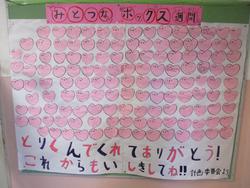 みとつな ボックス 週間
とりくんでくれてありがとう!
これからもいしきしてね!!